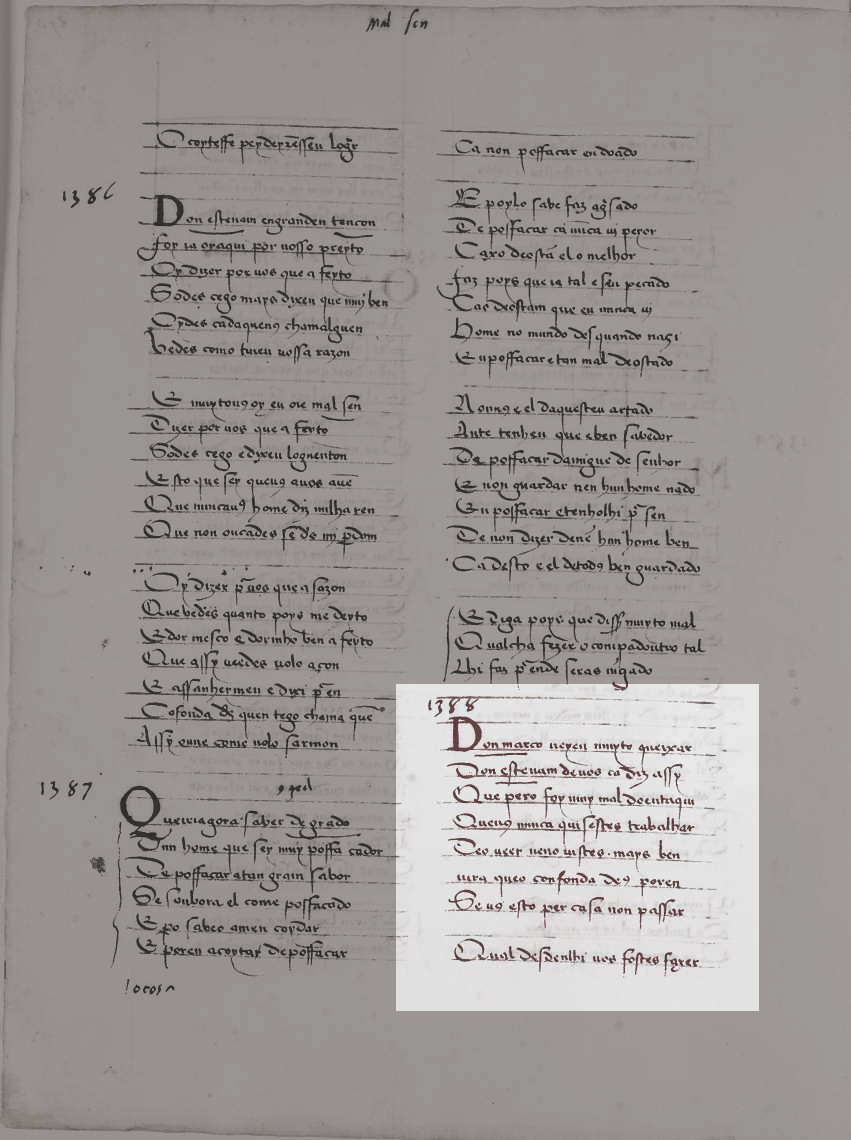 mal sen
E coyteffe perderensseu logr
1386
Don esteuam engranden tencon
foy ia oraqui por uosso preyto
Oy dizer por uos que a feyto
Sodes cego mays dixeu que muy ben
Oydes cadaquenus chamalguen
Uedes como tiueu uossa razon
E muytous oy eu ore mal sen
Dizer por uos que a feyto
Sodes cego e dixeu lognenton
Esto que ser quenus auos aue
Que nuncaus home diz milharen
Que non oucades se ds mi pdom
Oy dizer puos que a sazon
Que uedes quanto poys me deyto
E dormesco e dorinho ben a feyto
Que assy ueedes uolo acon
E assanheymeu e dixi pen
Cofonda ds quen cego chama que
Assy ouue come uolo sarmon
1387
Queiragora saber de grado
Dun home que sey muy possa cador
De possacar a tan grain sabor
Se sonbora el come possacado
E po sabeo amen coydar
E poren acoytar de possacar
Ca non possacar en doado
E poylo sabe faz aguisado
De possacar ca nunca ui peyor
Caro deosta el o melhor
faz poys que ia tal e seu pecado
Cae deostam que eu nunca ui
home no mundo des quando naçi
En possacar e tan mal deostado
A outrus e el daquesteu artado
Ante tenheu que e ben sabedor
De possacar damigue de senhor
E non guardar nen hun home nado
En possacar e tenholhi por sen
De non dizer de nen hun home ben
Ca desto e el de todos ben guardado
E diga poys que diss muyto mal
Qualcha fezer o compadoutro tal
Lhi faz pende seras uigado
1388
Don marco ueyeu muyto queixar
Don esteuam de uos ca diz assy
Que pero foy muy mal doentaqui
Quenus nunca quisestes trabalhar
Deo ueer neno uistes. mays ben
iura queo confonda deus poren
Seus esto per casa non passar
Qual desdenlhi uos fostes fazer